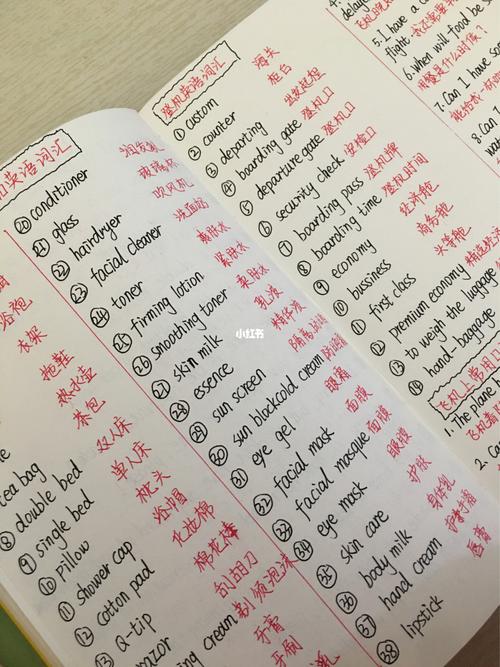 英语词汇
浴袍
衣架
拖鞋
热水壶
tea bag 茶包
⑧ double bed 双人床
⑨ single bed 单人床
⑩ pillow 枕头
⑪ shower cap 浴帽
⑫ cotton pad 化妆棉
⑬ Q-tip 棉花棒
razor 刮胡刀
cream 剃须泡沫
牙膏
牙刷
⑳ conditioner 润发乳
㉑ glass 玻璃杯
㉒ hairdryer 吹风机
㉓ facial cleaner 洗面奶
㉔ toner 爽肤水
㉕ firming lotion 紧肤水
㉖ smoothing toner 柔肤水
㉗ skin milk 乳液
㉘ essence 精华液
㉙ sun screen 隔离
㉚ sun blockcold cream 防晒霜
㉛ eye gel 眼霜
㉜ facial mask 面膜
㉝ facial masque 面膜
㉞ eye mask 眼膜
㉟ skin care 护肤
㊱ body milk 身体乳
㊲ hand cream 护手霜
㊳ lipstick 唇膏
小红书
登机英语词汇
① custom 海关
② counter 柜台
③ departing 出发
④ boarding gate 登机口
⑤ departure gate 登机口
⑥ security check 安检口
⑦ boarding pass 登机牌
⑧ boarding time 登机时间
⑨ economy 经济舱
⑩ bussiness 商务舱
⑪ first class 头等舱
⑫ premium economy
⑬ to weigh the luggage
⑭ hand-baggage
飞机上常用
1. The plane
2. Can
4.
delay
5. I have a
flight.
6. when will food be
是什么时候?
7. Can I have
8. Can